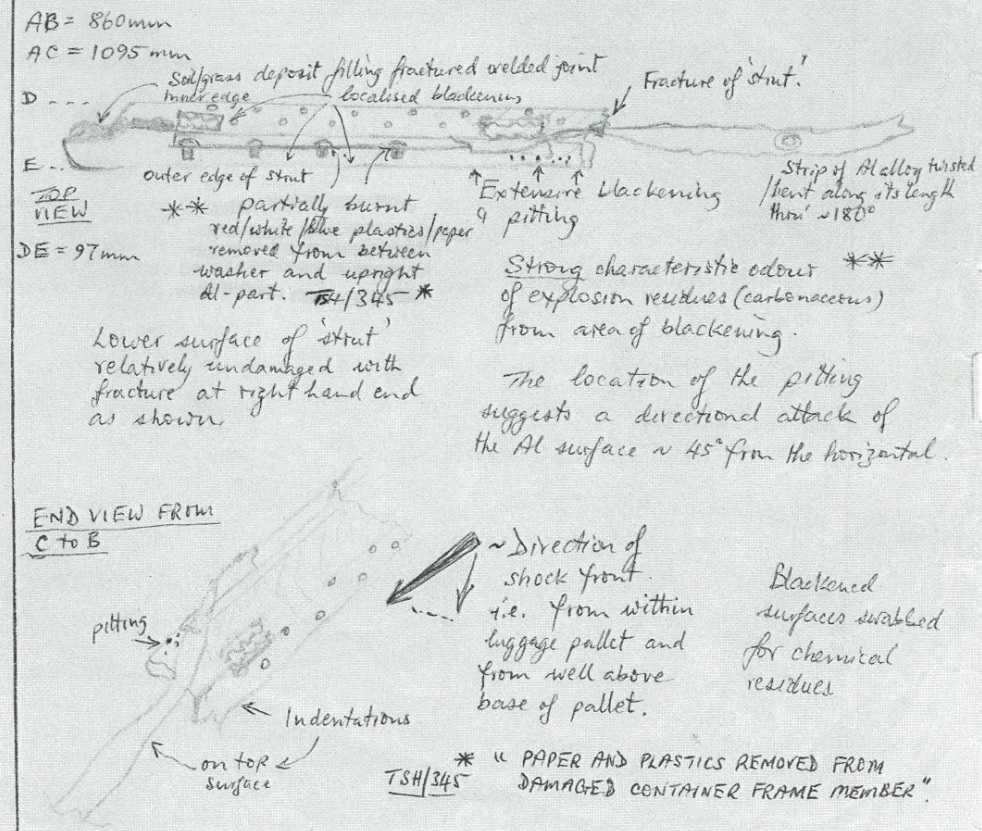 AB = 860mm
AC = 1095mm
Soil/grass deposit filling fractured welded joint
inner edge
localised blackening
Fracture of 'strut'.
D ...
E ..
TOP
VIEW
DE = 97mm
outer edge of strut
** partially burnt
red/white/blue plastics/paper
removed from between
washer and upright
Al-part. TSH/345 *
Extensive blackening
& pitting
Strip of Al alloy twisted
/bent along its length
thro' ~180°
Strong characteristic odour **
of explosion residues (carbonaceous)
from area of blackening.
Lower surface of 'strut'
relatively undamaged with
fracture at right hand end
as shown.
The location of the pitting
suggests a directional attack of
the Al surface ~ 45° from the horizontal.
END VIEW FROM
C to B
pitting
Indentations
on top
surface
~ Direction of
shock front.
i.e. from within
luggage pallet and
from well above
base of pallet.
Blackened
surfaces swabbed
for chemical
residues
TSH/345
* " PAPER AND PLASTICS REMOVED FROM
DAMAGED CONTAINER FRAME MEMBER".